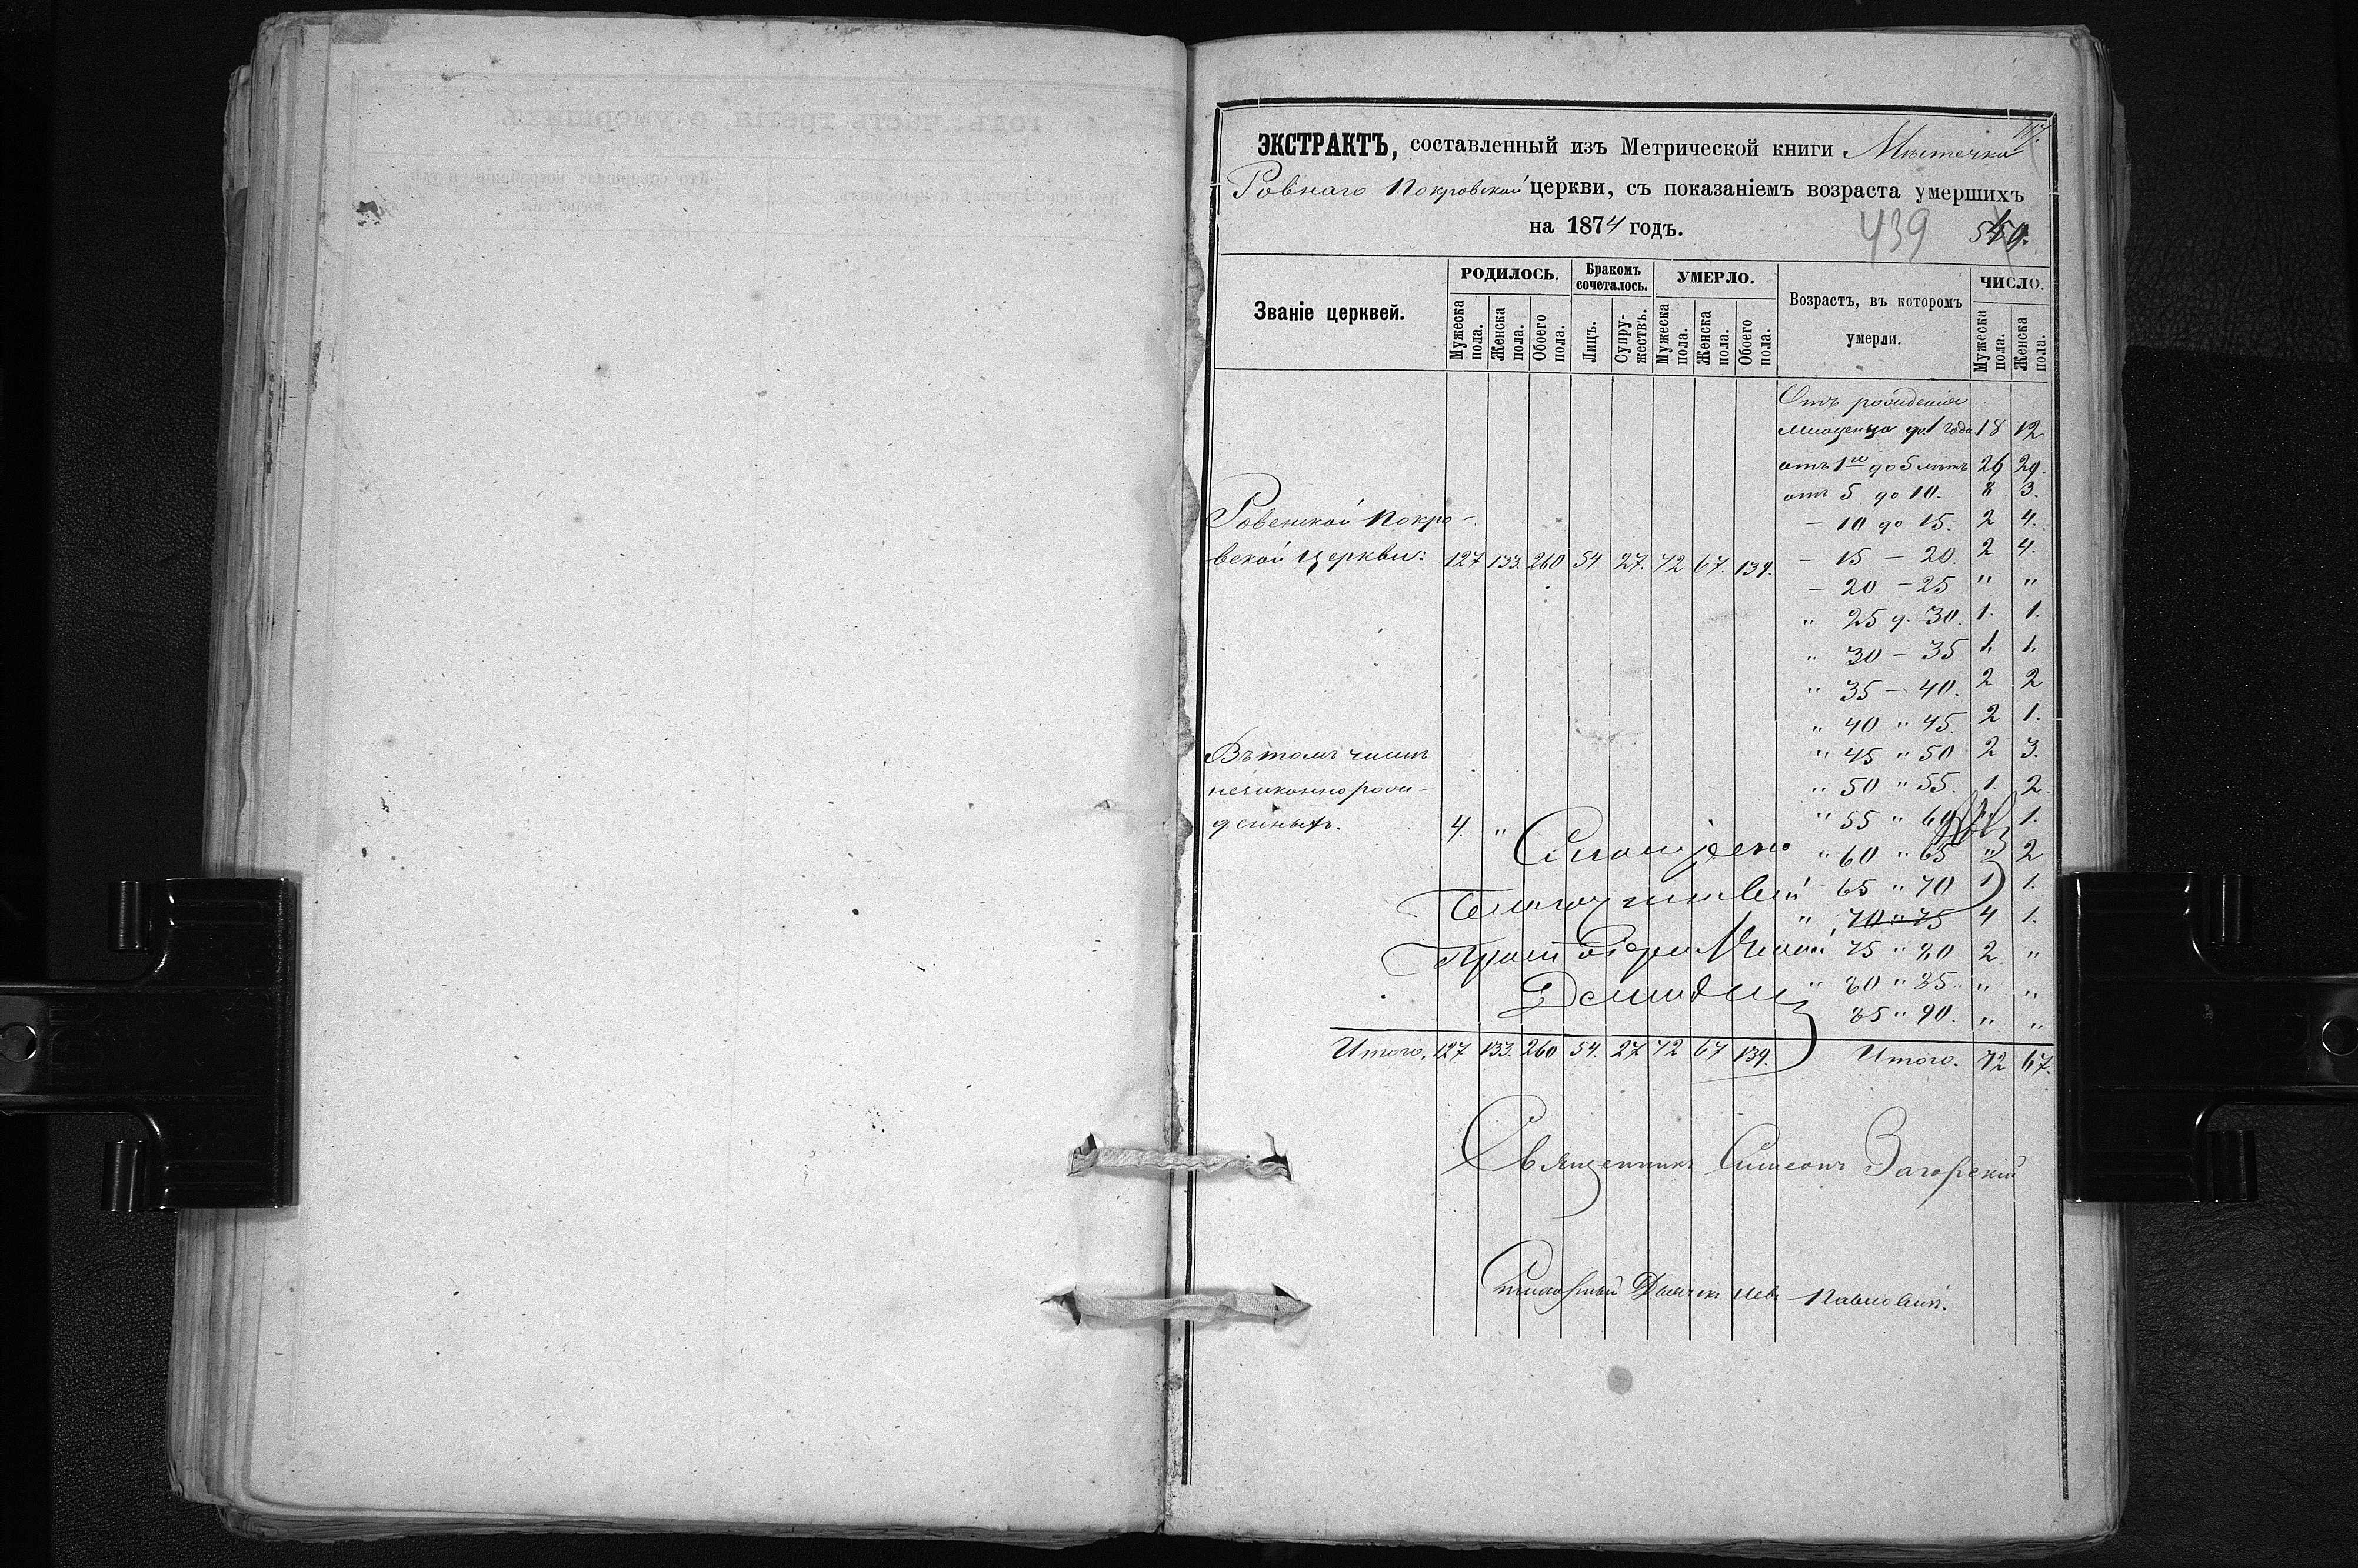 ЭКСТРАКТЪ, составленный изъ Метрической книги Мѣстечка
Ровнаго Покровской церкви, съ показаніемъ возраста умершихъ
на 1874 годъ.
439
Званіе церквей.
РОДИЛОСЬ.
Бракомъ сочеталось.
УМЕРЛО.
Возрастъ, въ которомъ умерли.
ЧИСЛО.
Мужеска пола.
Женска пола.
Обоего пола.
Лицъ.
Супружествъ.
Мужеска пола.
Женска пола.
Обоего пола.
Мужеска пола.
Женска пола.
Отъ рожденія
младенца до 1 года 18 12
отъ 1го до 5 лѣтъ 26 29.
отъ 5 до 10. 8 3.
Ровенской Покро-
— 10 до 15. 2 4.
вской церкви: 127 133. 260 54 27. 72 67. 139.
— 15 — 20. 2 4.
— 20 — 25 " "
" 25 д. 30. 1. 1.
" 30 — 35 1. 1.
" 35 — 40. 2 2
" 40 " 45. 2 1.
Въ томъ числѣ
" 45 " 50 2 3.
незаконнорож-
" 50 " 55. 1. 2
денныхъ. 4. "
" 55 " 60 " 1.
" 60 " 65 " 2
Благочинный 65 " 70 1 1.
" 70 " 75 4 1.
75 " 80 2. "
" 80 " 85 " "
85 " 90. " "
Итого. 127 133. 260 54. 27 72 67 139. Итого. 72 67.
Священникъ Симеонъ Загорскій
Дьячекъ Левъ Павловичъ.